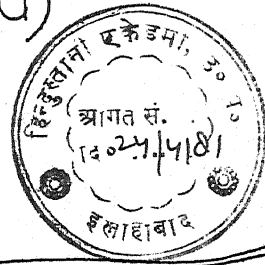 हिन्दुस्तानी एकेडमी, उ० प्र०
आगत सं.
दि० 24/4/81
इलाहाबाद